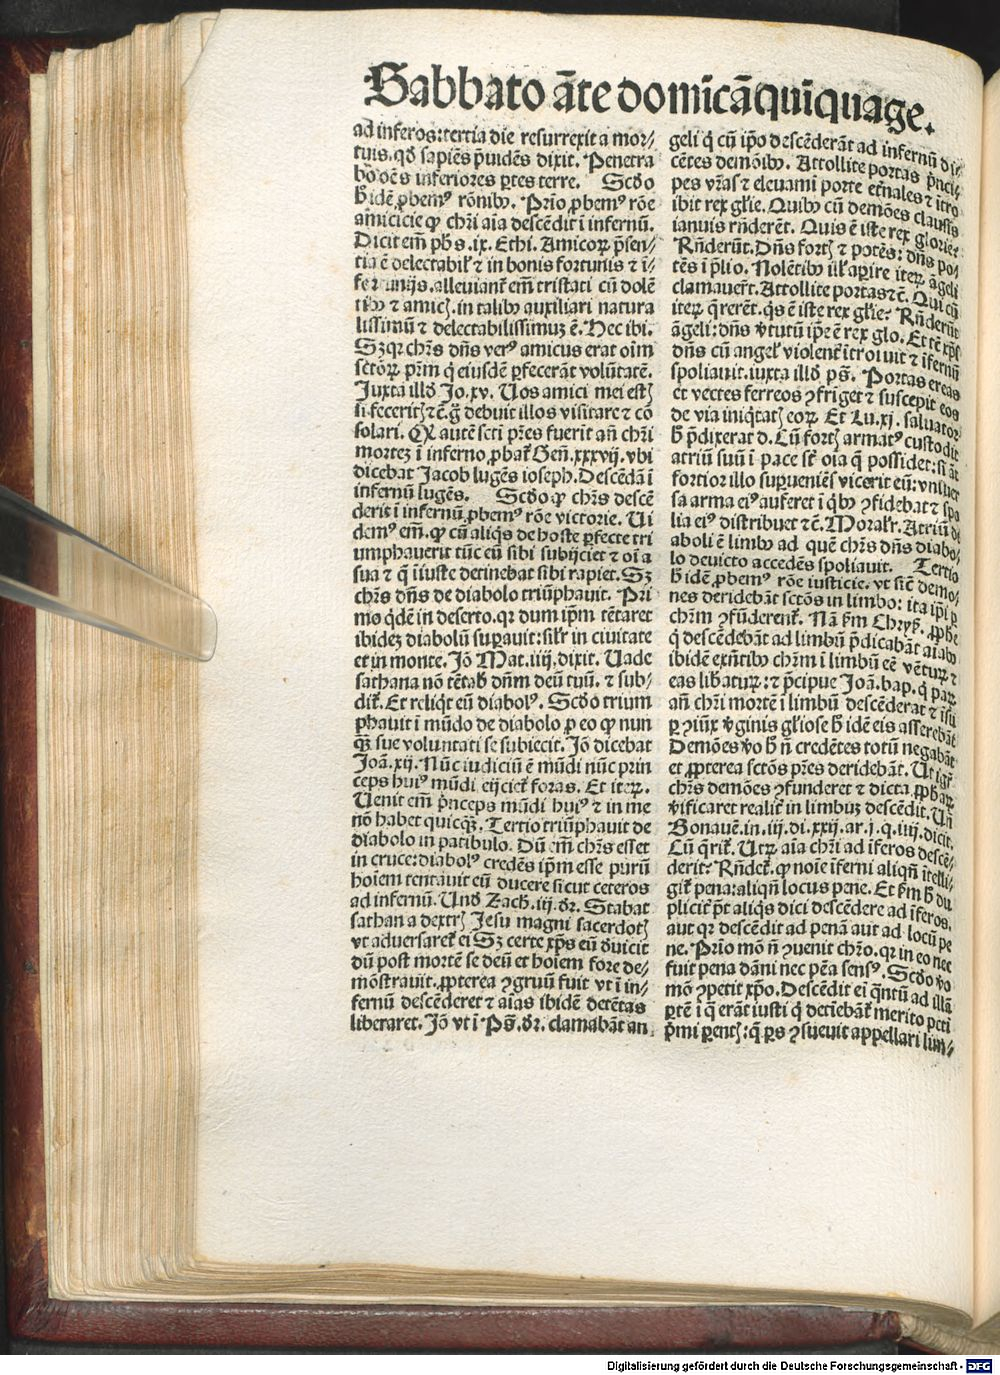 Sabbato āte domīcā quīquage.
ad inferos: tertia die resurrexit a mor⸗
tuis. qd̄ sapiēs p̄uidēs dixit. Penetra
bo oēs inferiores ꝑtes terre. Scd̓o
h̄ idē ꝓbemꝰ rōnibꝰ. Prīo ꝓbemꝰ rōe
amicicie ꝙ chr̄i aīa descēdit ī infernū.
Dicit em̄ ph̄s .ix. Ethi. Amicoꝝ p̄sen⸗
tia ē delectabil̓ ⁊ in bonis fortunis ⁊ ī⸗
fortunijs. alleuiant̄ em̄ tristati cū dolē
tibꝰ ⁊ amicꝭ. in talibꝰ auxiliari natura
lissimū ⁊ delectabilissimuꝫ ē. Hec ibi.
Sꝫ qꝛ chr̄s dn̄s verꝰ amicus erat oīm
sctōꝝ pr̄m q̓ eiusdē ꝑfecerāt volūtatē.
Iuxta illd̓ Jo. xv. Uos amici mei estꝭ
si feceritꝭ ⁊c̄. g̊ debuit illos visitare ⁊ cō
solari. Q autē sct̄i pr̄es fuerīt an̄ chr̄i
morteꝫ ī inferno, ꝓbat̄ Gen̄. xxxvij. vbi
dicebat Jacob lugēs ioseph. Descēdā ī
infernū lugēs. Scd̓o ꝙ chr̄s descē
derit ī infernū, ꝓbemꝰ rōe victorie. Ui
demꝰ em̄. ꝙ cū aliq̓s de hoste ꝑfecte tri
umphauerit tūc eū sibi subijciet ⁊ oīa
sua ⁊ q̄ iīuste detinebat sibi rapiet. Sꝫ
chr̄s dn̄s de diabolo triūphauit. Pri
mo q̓dē in deserto. qꝛ dum ip̄m tētaret
ibideꝫ diabolū suꝑauit: sil̓r in ciuitate
et in monte. Jō Mat. iiij. dixit. Uade
sathana nō tētabꝭ dn̄m deū tuū. ⁊ sub⸗
dit̄. Et reliq̓t eū diabolꝰ. Scd̓o trium
phauit ī mūdo de diabolo ꝑ eo ꝙ nun
qꝫ sue voluntati se subiecit. Jō dicebat
Joā. xij. Nūc iudiciū ē mūdi nūc prin
ceps huiꝰ mūdi eijciet̄ foras. Et iteꝝ.
Uenit em̄ p̄nceps mūdi huiꝰ ⁊ in me
nō habet quicqꝫ. Tertio triūphauit de
diabolo in patibulo. Dū em̄ chr̄s esset
in cruce: diabolꝰ credēs ip̄m esse purū
hoīem tentauit eū ducere sicut ceteros
ad infernū. Und̓ Zach̄. iij. dr̄. Stabat
sathan a dextrꝭ Jesu magni sacerdotꝭ
vt aduersaret̄ ei Sꝫ certe xp̄s eū d̓uicit
dū post mortē se deū et hoīem fore de⸗
mōstrauit. ꝓpterea ꝯgruū fuit vt ī in⸗
fernū descēderet ⁊ aīas ibidē detētas
liberaret. Jō vt ī Ps̄. dr̄. clamabāt an
geli q̓ cū ip̄o descēderāt ad infernū di⸗
cētes demōibꝰ. Attollite portas p̄nci⸗
pes vr̄as ⁊ eleuamī porte et̄nales ⁊ ītro
ibit rex gl̄ie. Quibꝰ cū demōes clausis
ianuis rn̄derēt. Quis ē iste rex glorie:
Rn̄derūt. Dn̄s fortꝭ ⁊ potēs: dn̄s po⸗
tēs ī p̄lio. Nolētibꝰ īll̓ aꝑire iteꝝ āgeli
clamauer̄t. Attollite portas ⁊c̄. Qui cū
iteꝝ q̄rerēt. q̓s ē iste rex gl̄ie: Rn̄derūt
āgeli: dn̄s v̓tutū ip̄e ē rex glo. Et tc̄ xp̄s
dn̄s cū angel̓ violent̄ ītroiuit ⁊ īfernū
spoliauit. iuxta illd̓ ps̄. Portas ereas
et vectes ferreos ꝯfriget ⁊ suscepit eos
de via iniq̓tatꝭ eoꝝ. Et Lu. xj. saluator
h̄ p̄dixerat d. Cū fortꝭ armatꝰ custodit
atriū suū ī pace st̄ oīa q̄ possidet: si āt
fortior illo suꝑueniēs vicerit eū: vniuer
sa arma eiꝰ auferet ī q̓bꝰ ꝯfidebat ⁊ spo
lia eiꝰ distribuet ⁊c̄. Moral̓r. Atriū di
aboli ē limbꝰ ad quē chr̄s dn̄s diabo⸗
lo deuicto accedēs spoliauit. Tertio
h̄ idē ꝓbemꝰ rōe iusticie. vt sic̄ demo⸗
nes deridebāt sctōs in limbo: ita ip̄i ꝑ
chr̄m ꝯfūderent̄. Nā f̄m Chryꝭ. ꝓph̄e
q̓ descēdebāt ad limbū p̄dicabāt aīabꝰ
ibidē exn̄tibꝰ chr̄m ī limbū eē vētuꝝ ⁊
eas lib̓atuꝝ: ⁊ p̄cipue Joā. bap. q̓ paꝝ
an̄ chr̄i mortē ī limbū descēderat ⁊ īsū
ꝑ ꝯiūx v̓ginis gl̄iose h̄ idē eis asserebāt
Demōes v̓o h̄ n̄ credētes totū negabāt
et ꝓpterea sctōs pr̄es deridebāt. Ut igr̄
chr̄s demōes ꝯfunderet ⁊ dicta ꝓph̄aꝝ
v̓ificaret realit̄ in limbuꝫ descēdit. Un̄
Bonauē. in .iij. di. xxij. ar. j. q. iiij. dicit.
Cū q̄rit̄. Utꝝ aīa chr̄i ad īferos descē⸗
derit: Rn̄det̄. ꝙ noīe īferni aliqn̄ ītelli⸗
git̄ pena: aliqn̄ locus pene. Et f̄m h̄ du
plicit̄ pt̄ aliq̓s dici descēdere ad īferos.
aut qꝛ descēdit ad penā aut ad locū pe
ne. Prīo mō n̄ ꝯuenit chr̄o. qꝛ in eo nec
fuit pena dāni nec pēa sensꝰ. Scd̓o v̓o
mō ꝯpetit xp̄o. Descēdit ei q̓ntū ad illā
ꝑtē ī q̄ erāt iusti q̓ detiebāt̄ merito pcti
p̄mi ꝑentꝭ: q̄ ꝑs ꝯsueuit appellari lim⸗
Digitalisierung gefördert durch die Deutsche Forschungsgemeinschaft - DFG